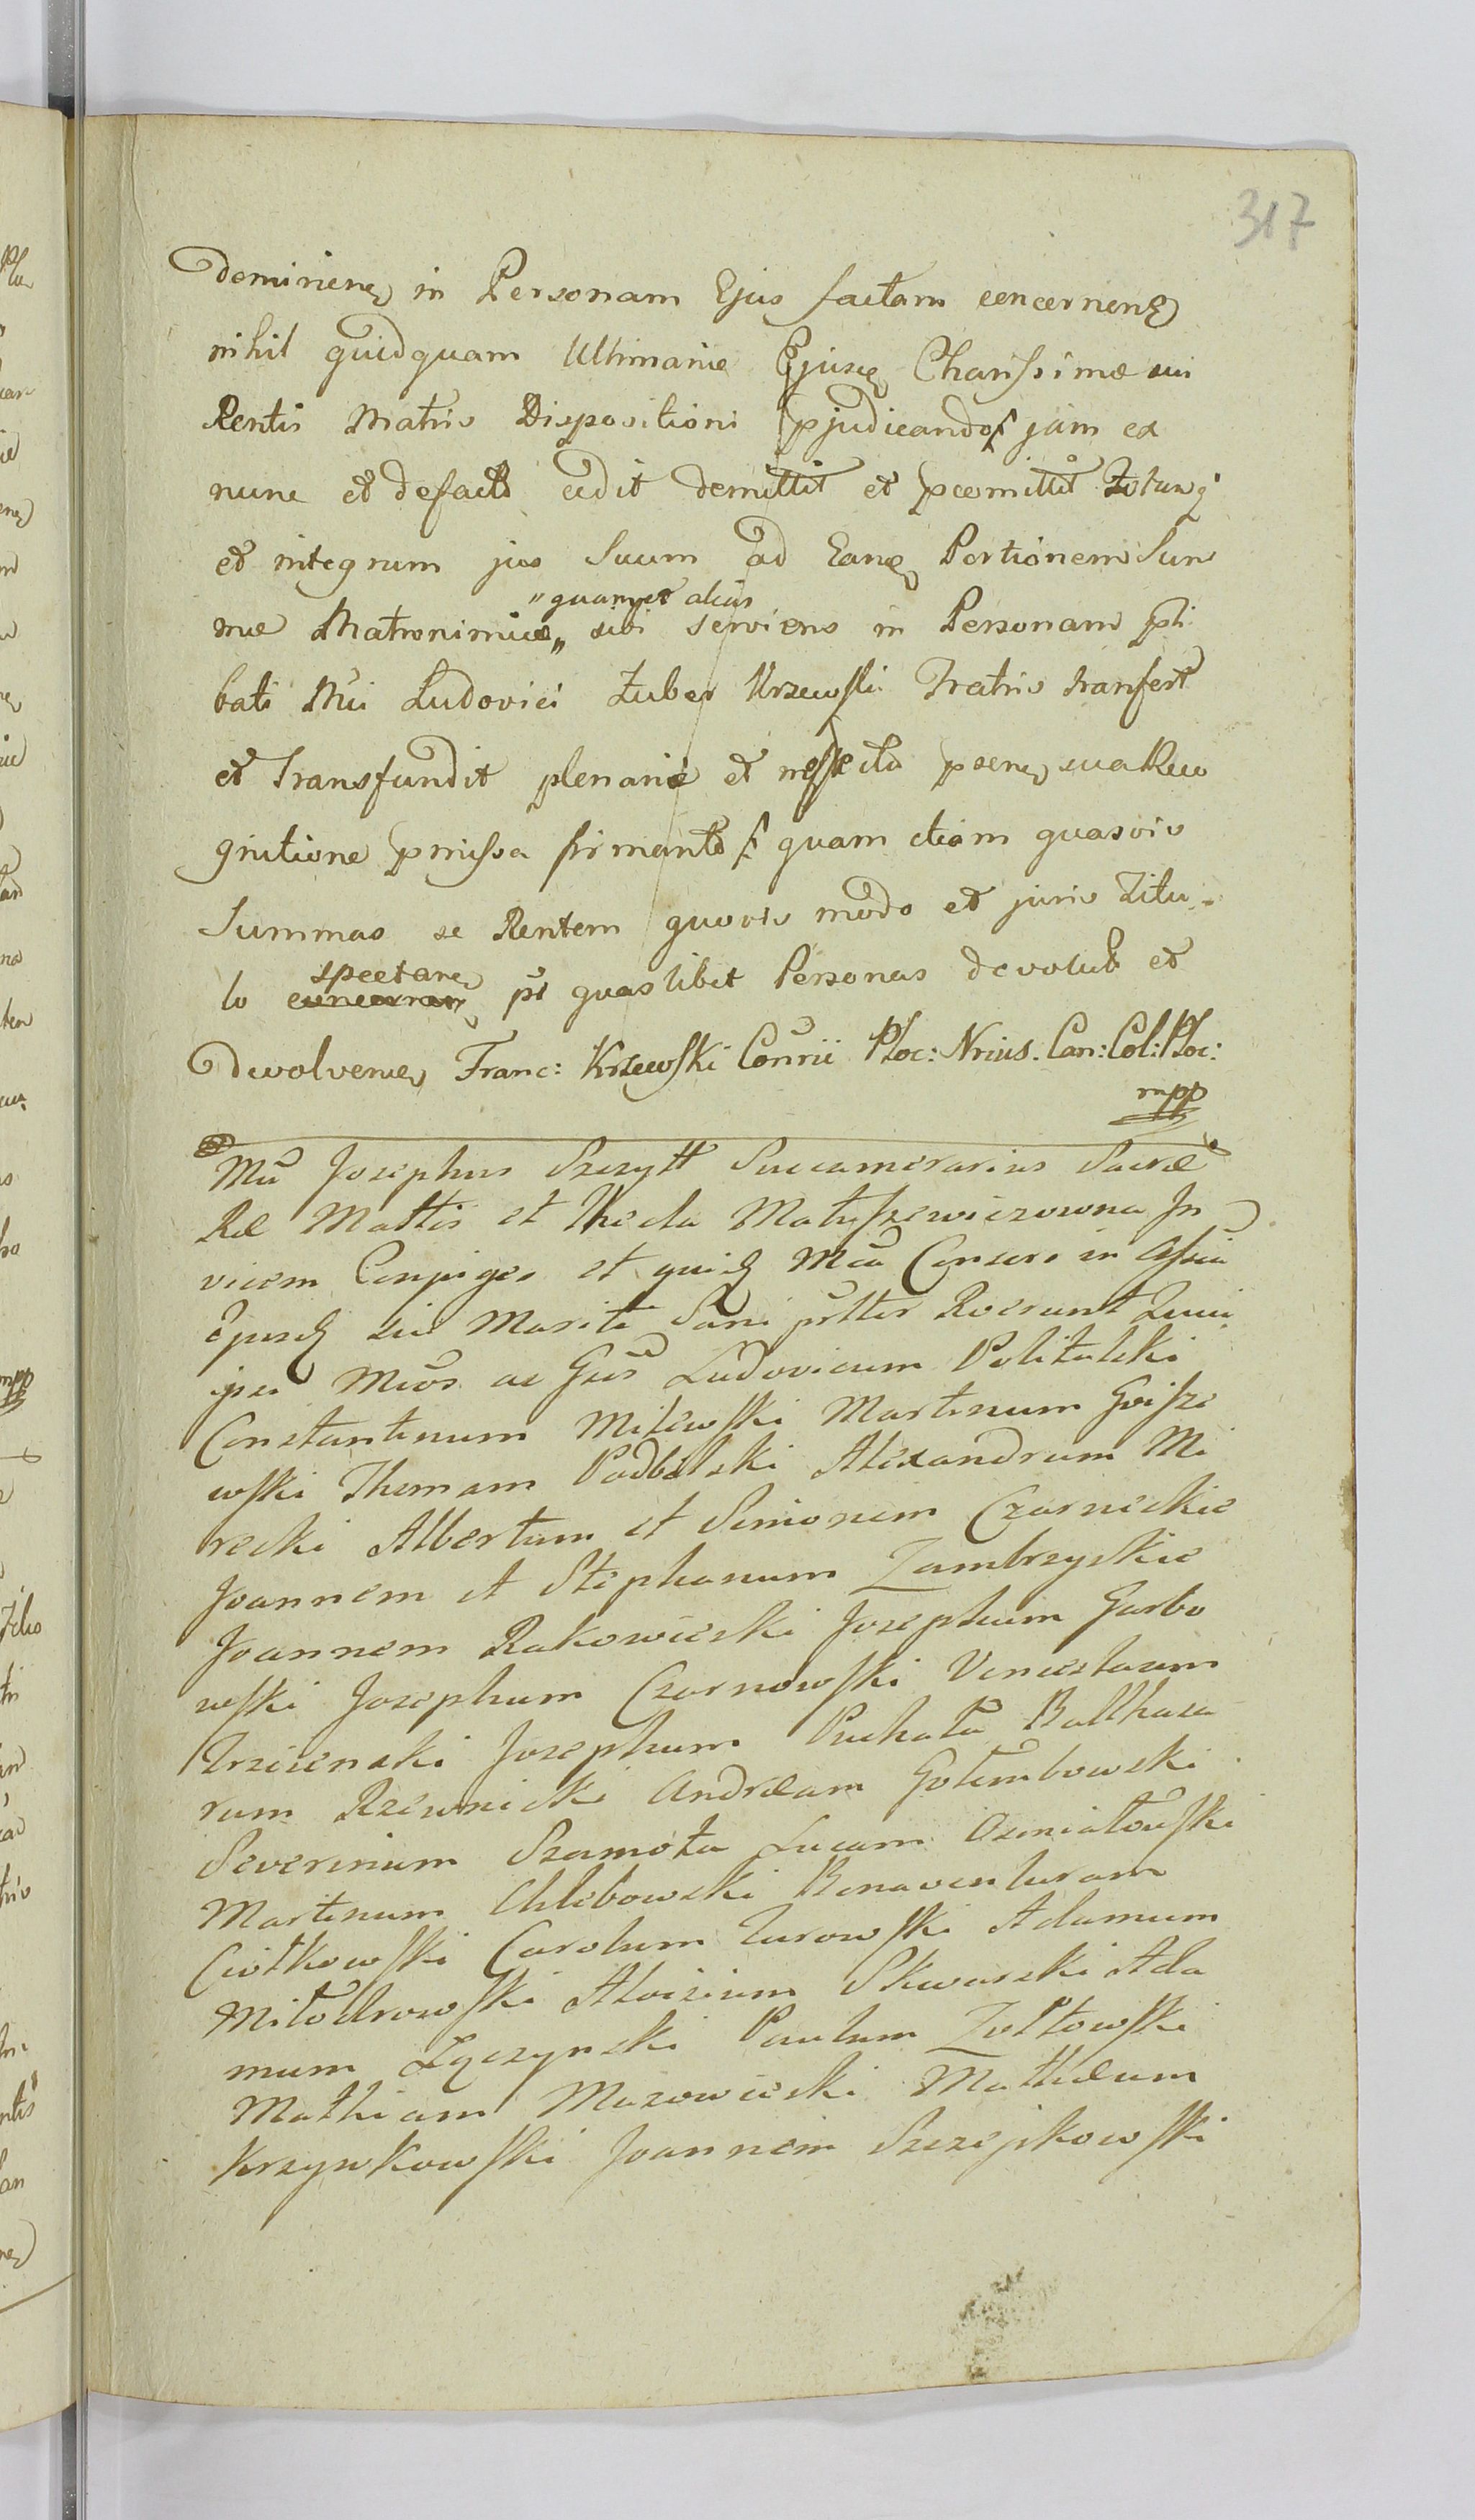 317
in Personam Ejus factam
nihil quidquam Ultimariæ Charissimæ sui
Rentis Matris Dispositioni pjudicando jam ex
nunc et defacto cedit demittit et
et integrum jus Suum ad Portionem Sum
"quamvis alias
mæ Matronimicæ" sibi serviens in Personam pli
bati Mci Ludovici Zuber Krzewski Fratris transfert
et Transfundit plenarie et sua Reco
gnitione pmissa firmanto quam etiam quasvis
Summas se Rentem quovis modo et juris Titu-
lo spectare pr quaslibet Personas devolut et
Devolven Franc: Krzewski Conrii Ploc: Nrius. Can: Col: Ploc:
mpp
Josephus Szczytt Succamerarius Sacræ
Ræ Mattis et Thecla Matuszewiczowna In
vicem Conjuges et quid Mca Consors in Assia
Ejusd sui Mariti Sani Roerunt
ipsi ac Ludovicum Politalski
Constantinum Milewski Martinum
wski Thomam Podbilski Alexandrum Mi
recki Albertum et Simonem Czarneckie
Joannem et Stephanum Zambrzyskie
Joannem Rakowieski Josephum Garbo
wski Josephum Czarnowski Venceslaum
Trzcienski Josephum Puchała Balthasa
rum Rzewnicki Andræam Gołembowski
Severinum Szamota Lucam Osmiałowski
Martinum Chlebowski Bonaventuram
Ciołkowski Carolum Zurowski Adamum
Miłodrowski Aloisium Skwarski Ada
mum Łączynski Paulum Zołtowski
Mathiam Mazowieski Mathæum
Krzywkowski Joannem Szczepkowski